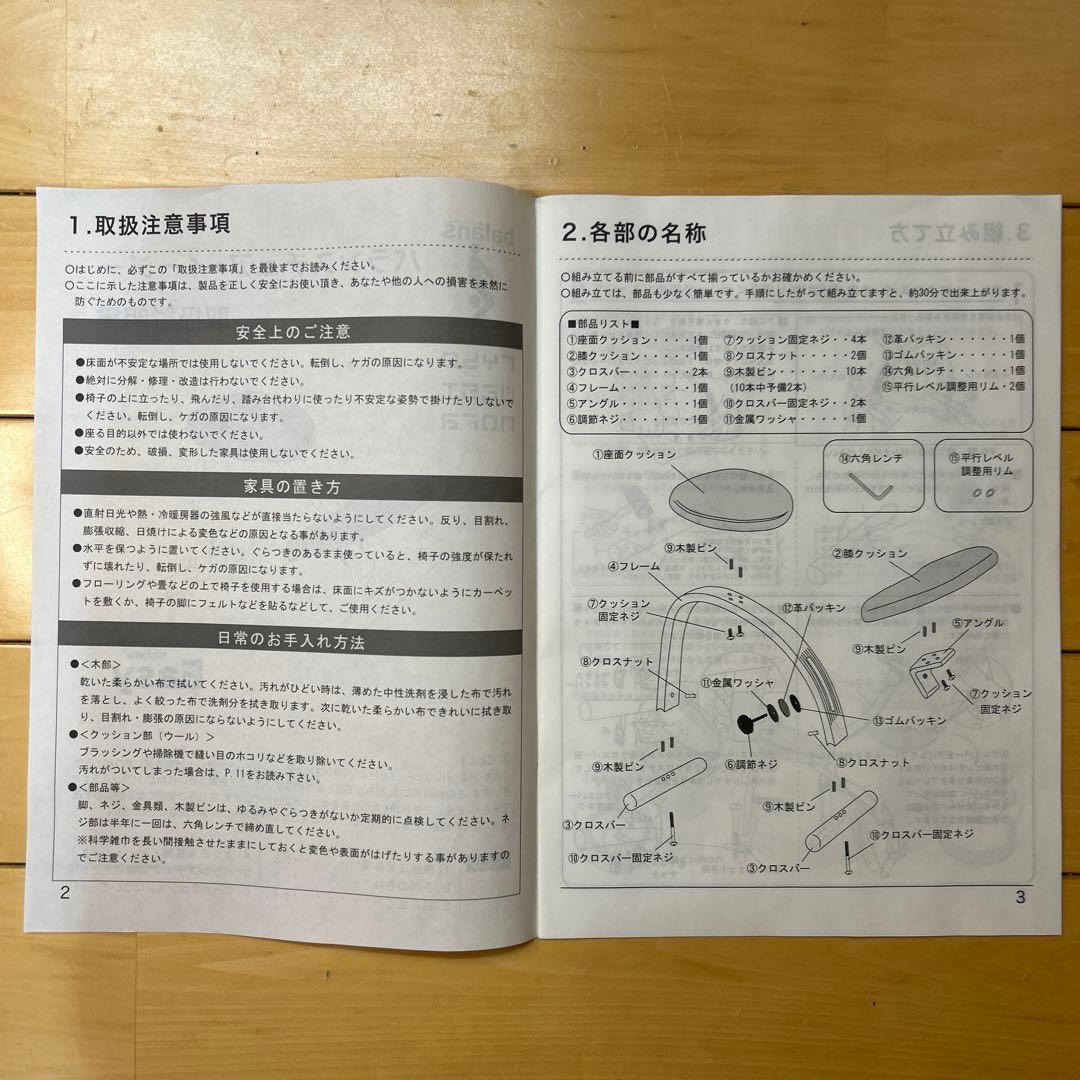 1.取扱注意事項
○はじめに、必ずこの「取扱注意事項」を最後までお読みください。
○ここに示した注意事項は、製品を正しく安全にお使い頂き、あなたや他の人への損害を未然に
防ぐためのものです。
安全上のご注意
●床面が不安定な場所では使用しないでください。転倒し、ケガの原因になります。
●絶対に分解・修理・改造は行わないでください。
●椅子の上に立ったり、飛んだり、踏み台代わりに使ったり不安定な姿勢で掛けたりしないで
ください。転倒し、ケガの原因になります。
●座る目的以外では使わないでください。
●安全のため、破損、変形した家具は使用しないでください。
家具の置き方
●直射日光や熱・冷暖房器の強風などが直接当たらないようにしてください。反り、目割れ、
膨張収縮、日焼けによる変色などの原因となる事があります。
●水平を保つように置いてください。ぐらつきのあるまま使っていると、椅子の強度が保たれ
ずに壊れたり、転倒し、ケガの原因になります。
●フローリングや畳などの上で椅子を使用する場合は、床面にキズがつかないようにカーペッ
トを敷くか、椅子の脚にフェルトなどを貼るなどして、ご使用ください。
日常のお手入れ方法
●＜木部＞
乾いた柔らかい布で拭いてください。汚れがひどい時は、薄めた中性洗剤を浸した布で汚れ
を落とし、よく絞った布で洗剤分を拭き取ります。次に乾いた柔らかい布できれいに拭き取
り、目割れ・膨張の原因にならないようにしてください。
●＜クッション部（ウール）＞
ブラッシングや掃除機で縫い目のホコリなどを取り除いてください。
汚れがついてしまった場合は、P.11をお読み下さい。
●＜部品等＞
脚、ネジ、金具類、木製ピンは、ゆるみやぐらつきがないか定期的に点検してください。ネ
ジ部は半年に一回は、六角レンチで締め直してください。
※科学雑巾を長い間接触させたままにしておくと変色や表面がはげたりする事がありますの
でご注意ください。
2
2.各部の名称
○組み立てる前に部品がすべて揃っているかお確かめください。
○組み立ては、部品も少なく簡単です。手順にしたがって組み立てますと、約30分で出来上がります。
■部品リスト■
①座面クッション・・・・1個 ⑦クッション固定ネジ・・4本 ⑫革パッキン・・・・・・・1個
②膝クッション・・・・・1個 ⑧クロスナット・・・・・2個 ⑬ゴムパッキン・・・・・・1個
③クロスバー・・・・・・2本 ⑨木製ピン・・・・・・ 10本 ⑭六角レンチ・・・・・・・1個
④フレーム・・・・・・・1個 (10本中予備2本) ⑮平行レベル調整用リム・2個
⑤アングル・・・・・・・1個 ⑩クロスバー固定ネジ・・2本
⑥調節ネジ・・・・・・・1個 ⑪金属ワッシャ・・・・・1個
①座面クッション
⑭六角レンチ
⑮平行レベル
調整用リム
⑨木製ピン
②膝クッション
④フレーム
⑦クッション
固定ネジ
⑫革パッキン
⑤アングル
⑨木製ピン
⑧クロスナット
⑪金属ワッシャ
⑦クッション
固定ネジ
⑬ゴムパッキン
⑨木製ピン
⑥調節ネジ
⑧クロスナット
⑨木製ピン
③クロスバー
⑩クロスバー固定ネジ
⑩クロスバー固定ネジ
③クロスバー
3